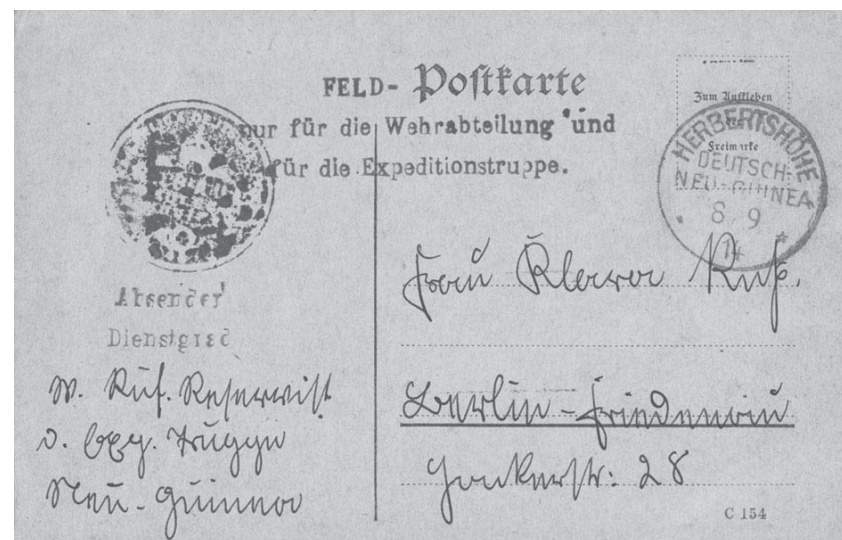 FELD- Postkarte
nur für die Wehrabteilung und
für die Expeditionstruppe.
Zum Aufkleben
der
Freimarke
HERBERTSHÖHE
DEUTSCH-
NEU-GUINEA
8 / 9
14
Absender
Dienstgrad
W. Ruf. Reservist
d. Exp. Truppe
Neu-Guinea
Frau Klara Ruf.
Berlin-Friedenau
28
C 154